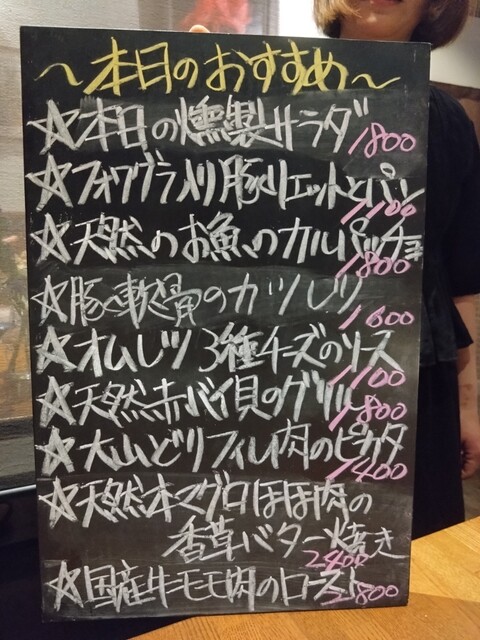 ～本日のおすすめ～
☆本日の燻製サラダ 1800
☆フォワグラ入り豚リエットとパン 1100
☆天然のお魚のカルパッチョ 1800
☆豚軟骨のカツレツ 1600
☆オムレツ 3種チーズのソース 1100
☆天然赤バイ貝のグリル 1800
☆大山どりフィレ肉のピカタ 1400
☆天然本マグロほほ肉の
香草バター焼き 2400
☆国産牛モモ肉のロースト 2800